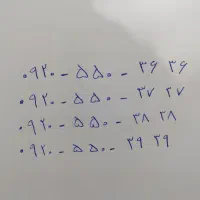 ۰۹۲۰ - ۵۵۰ - ۳۶ ۳۶
۰۹۲۰ - ۵۵۰ - ۳۷ ۳۷
۰۹۲۰ - ۵۵۰ - ۳۸ ۳۸
۰۹۲۰ - ۵۵۰ - ۳۹ ۳۹